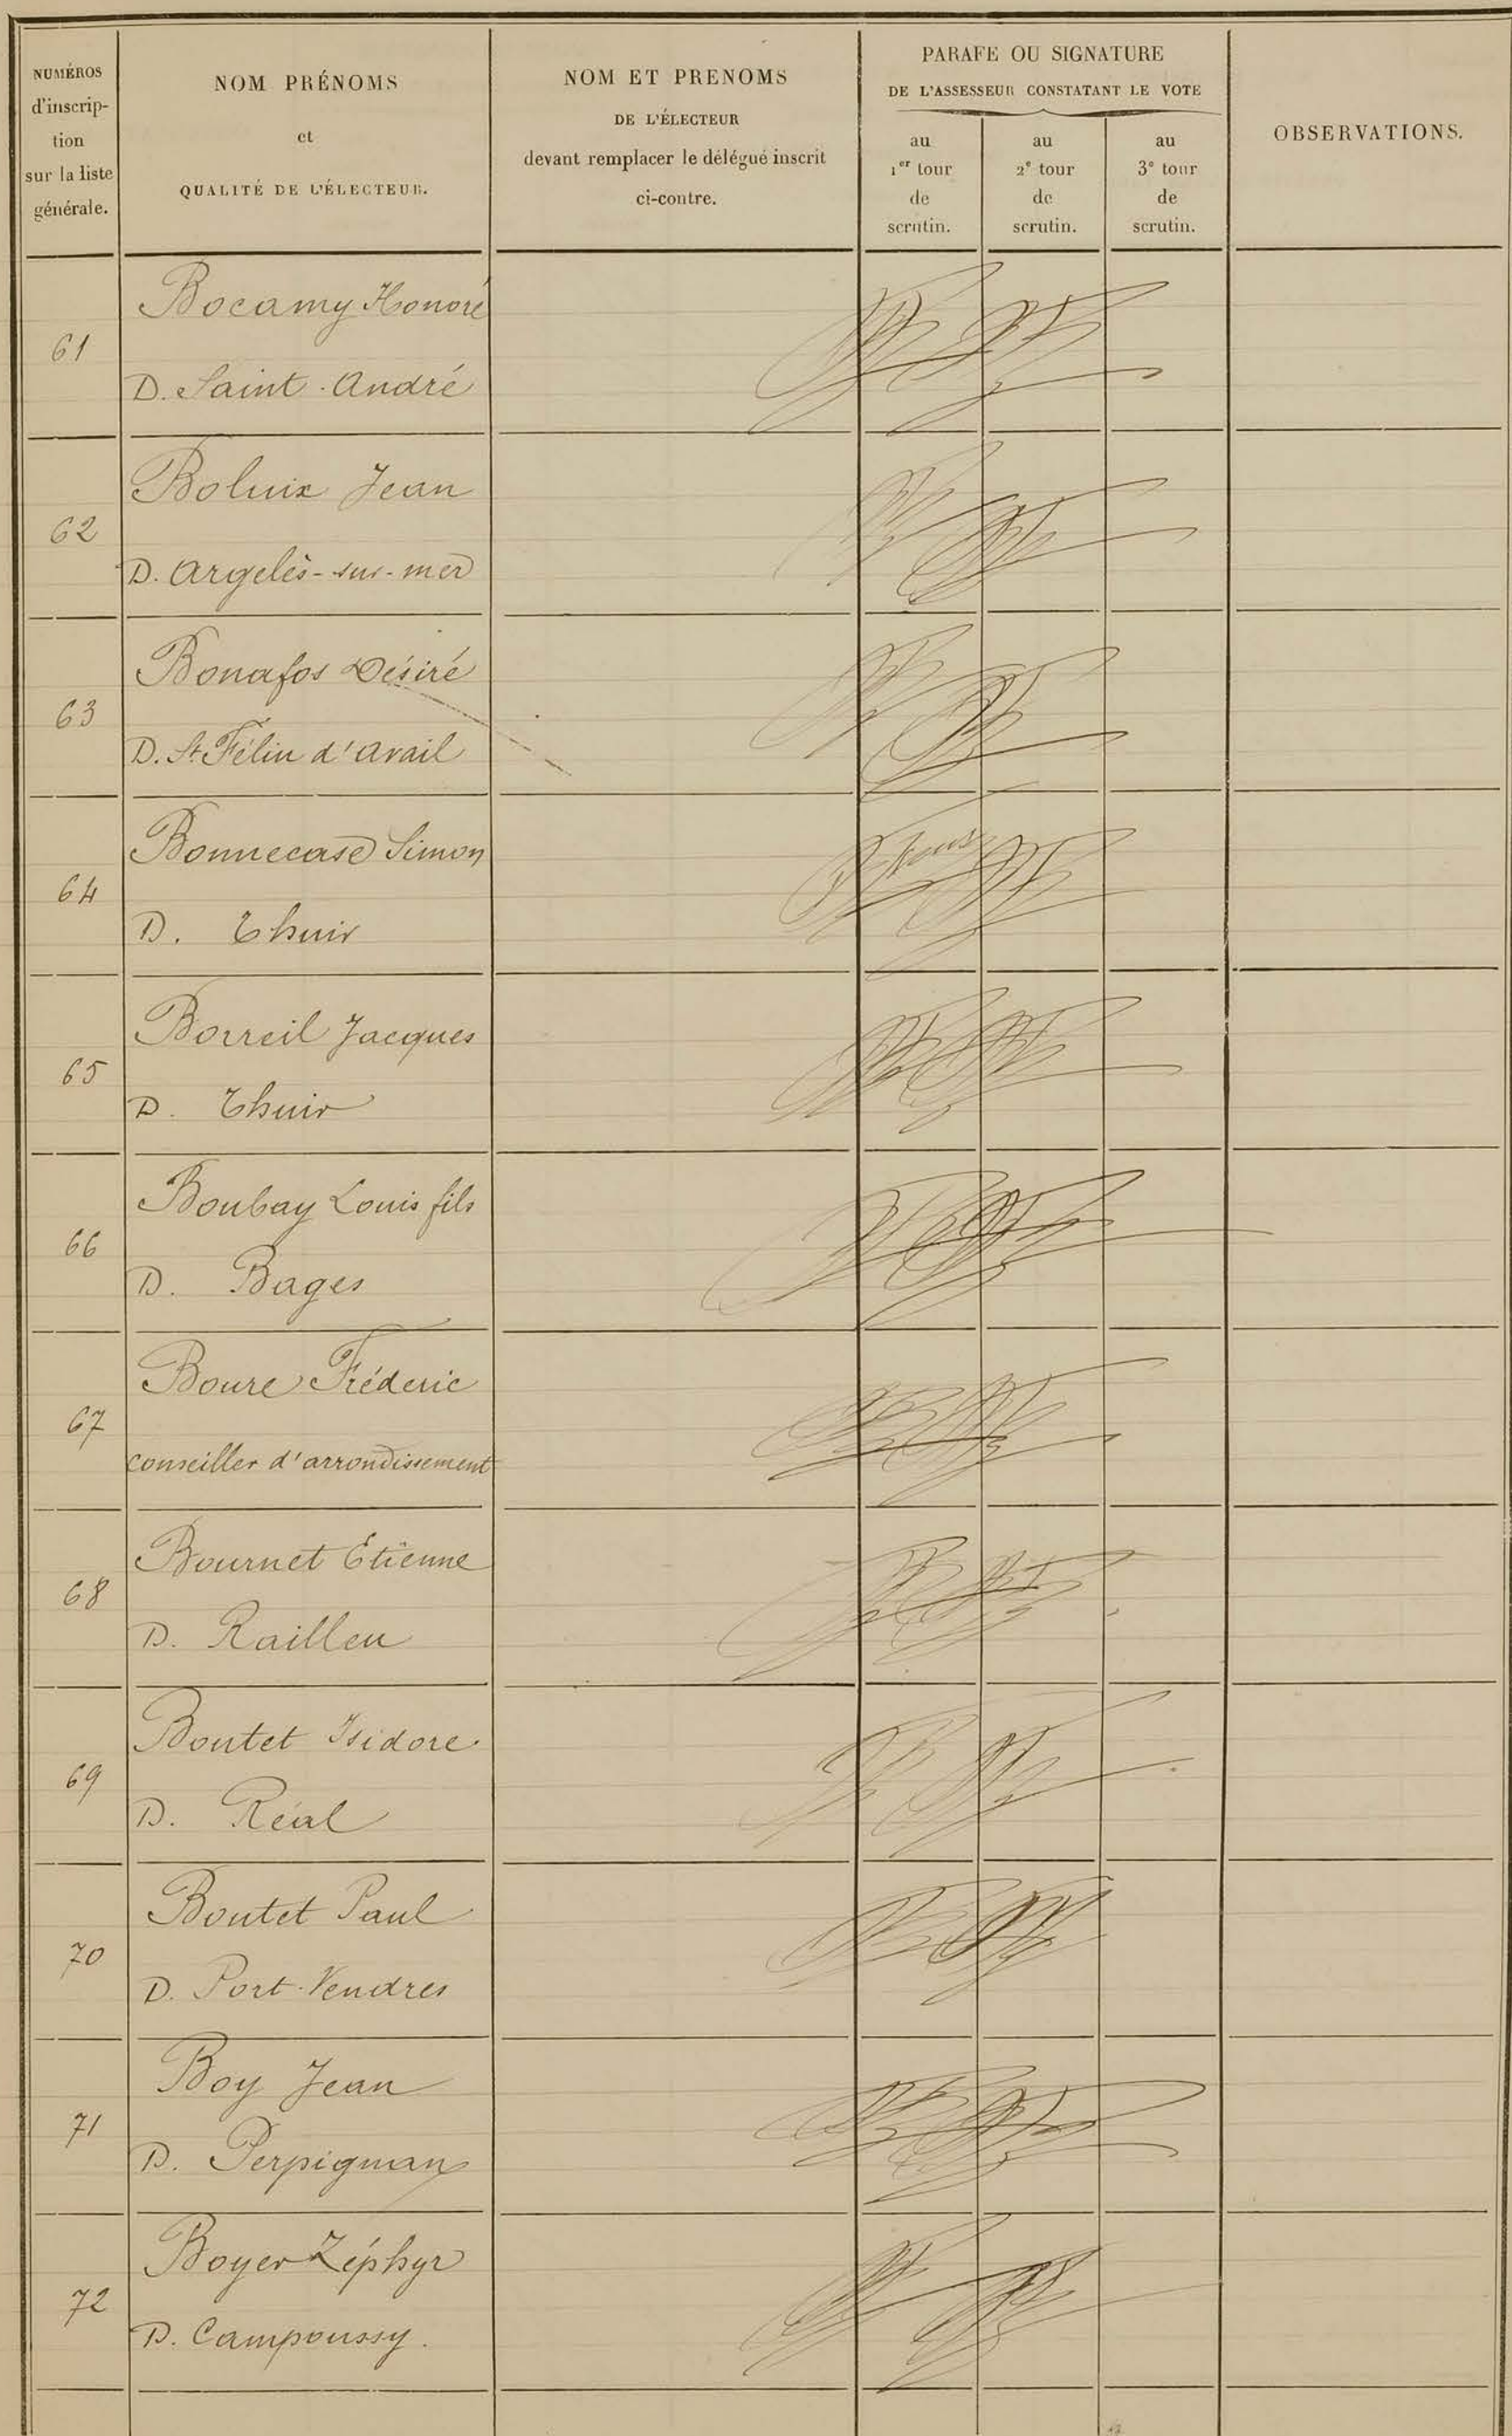 NUMÉROS
d'inscrip-
tion
sur la liste
générale.
NOM PRÉNOMS
et
QUALITÉ DE L'ÉLECTEUR.
NOM ET PRENOMS
DE L'ÉLECTEUR
devant remplacer le délégué inscrit
ci-contre.
PARAFE OU SIGNATURE
DE L'ASSESSEUR CONSTATANT LE VOTE
au
1er tour
de
scrutin.
au
2e tour
de
scrutin.
au
3e tour
de
scrutin.
OBSERVATIONS.
61
Bocamy Honoré
D. Saint-André
62
Boluix Jean
D. Argelès-sur-mer
63
Bonafos Désiré
D. St Félin d'avail
64
Bonnecase Simon
D. Thuir
65
Borreil Jacques
D. Thuir
66
Boubay Louis fils
D. Bages
67
Boure Fréderic
conseiller d'arrondissement
68
Bournet Etienne
D. Railleu
69
Boutet Isidore
D. Réal
70
Boutet Paul
D. Port-Vendres
71
Boy Jean
D. Perpignan
72
Boyer Zéphyr
D. Campoussy.